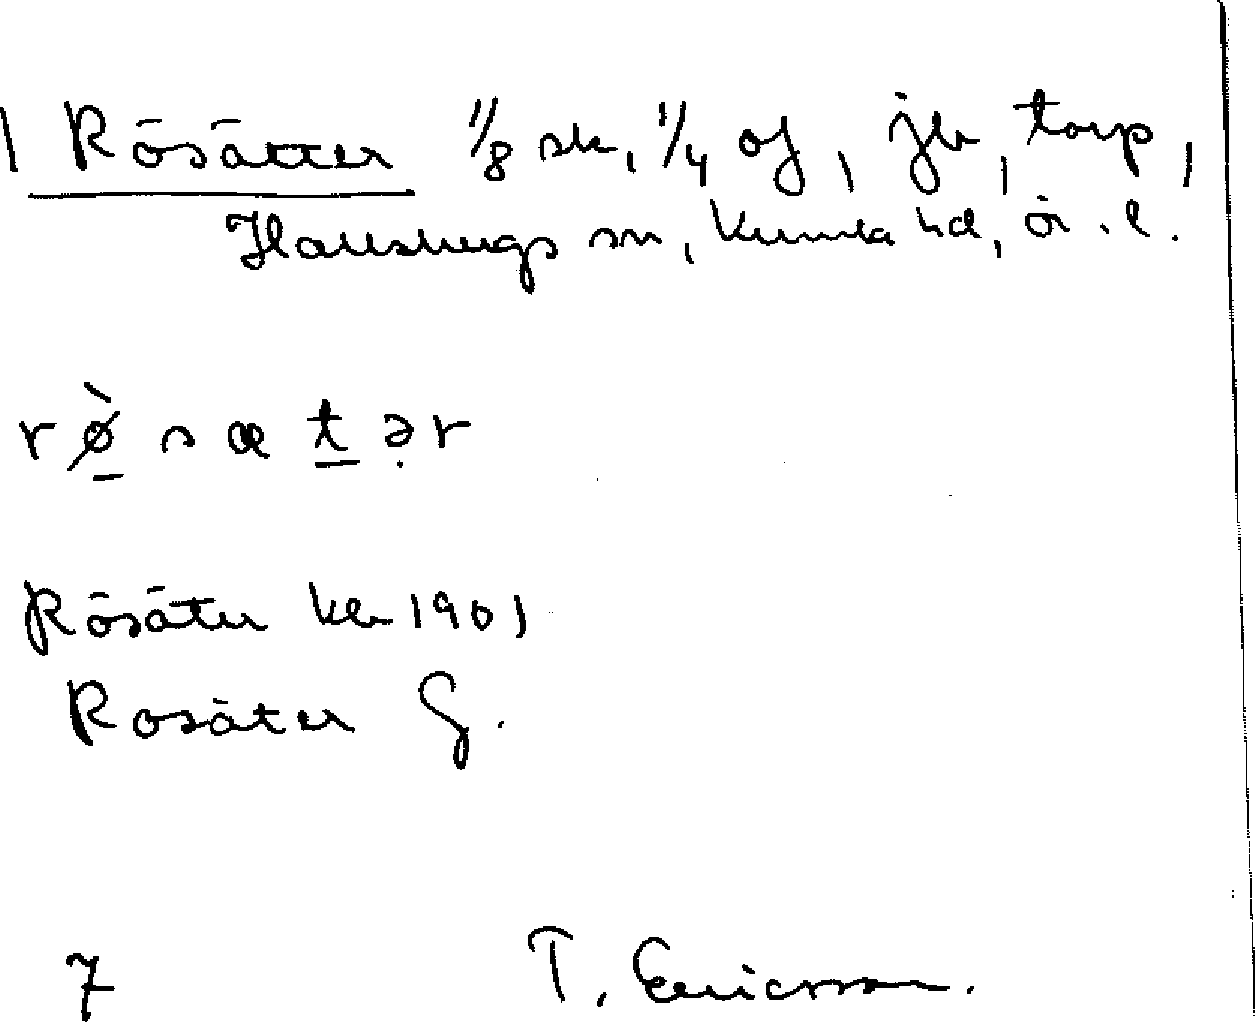 Rösätter 1/8 sk, 1/4 of, jb, torp,
Hallsbergs sn, Kumla hd, ör. l.
r ø̀ s æ t ə r
Rösäter kb 1901
Rosäter G.
7 T. Ericsson.